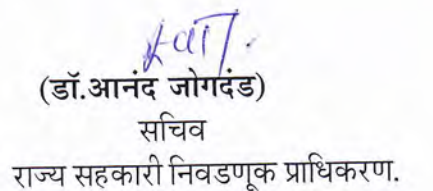 (डॉ.आनंद जोगदंड)
सचिव
राज्य सहकारी निवडणूक प्राधिकरण.